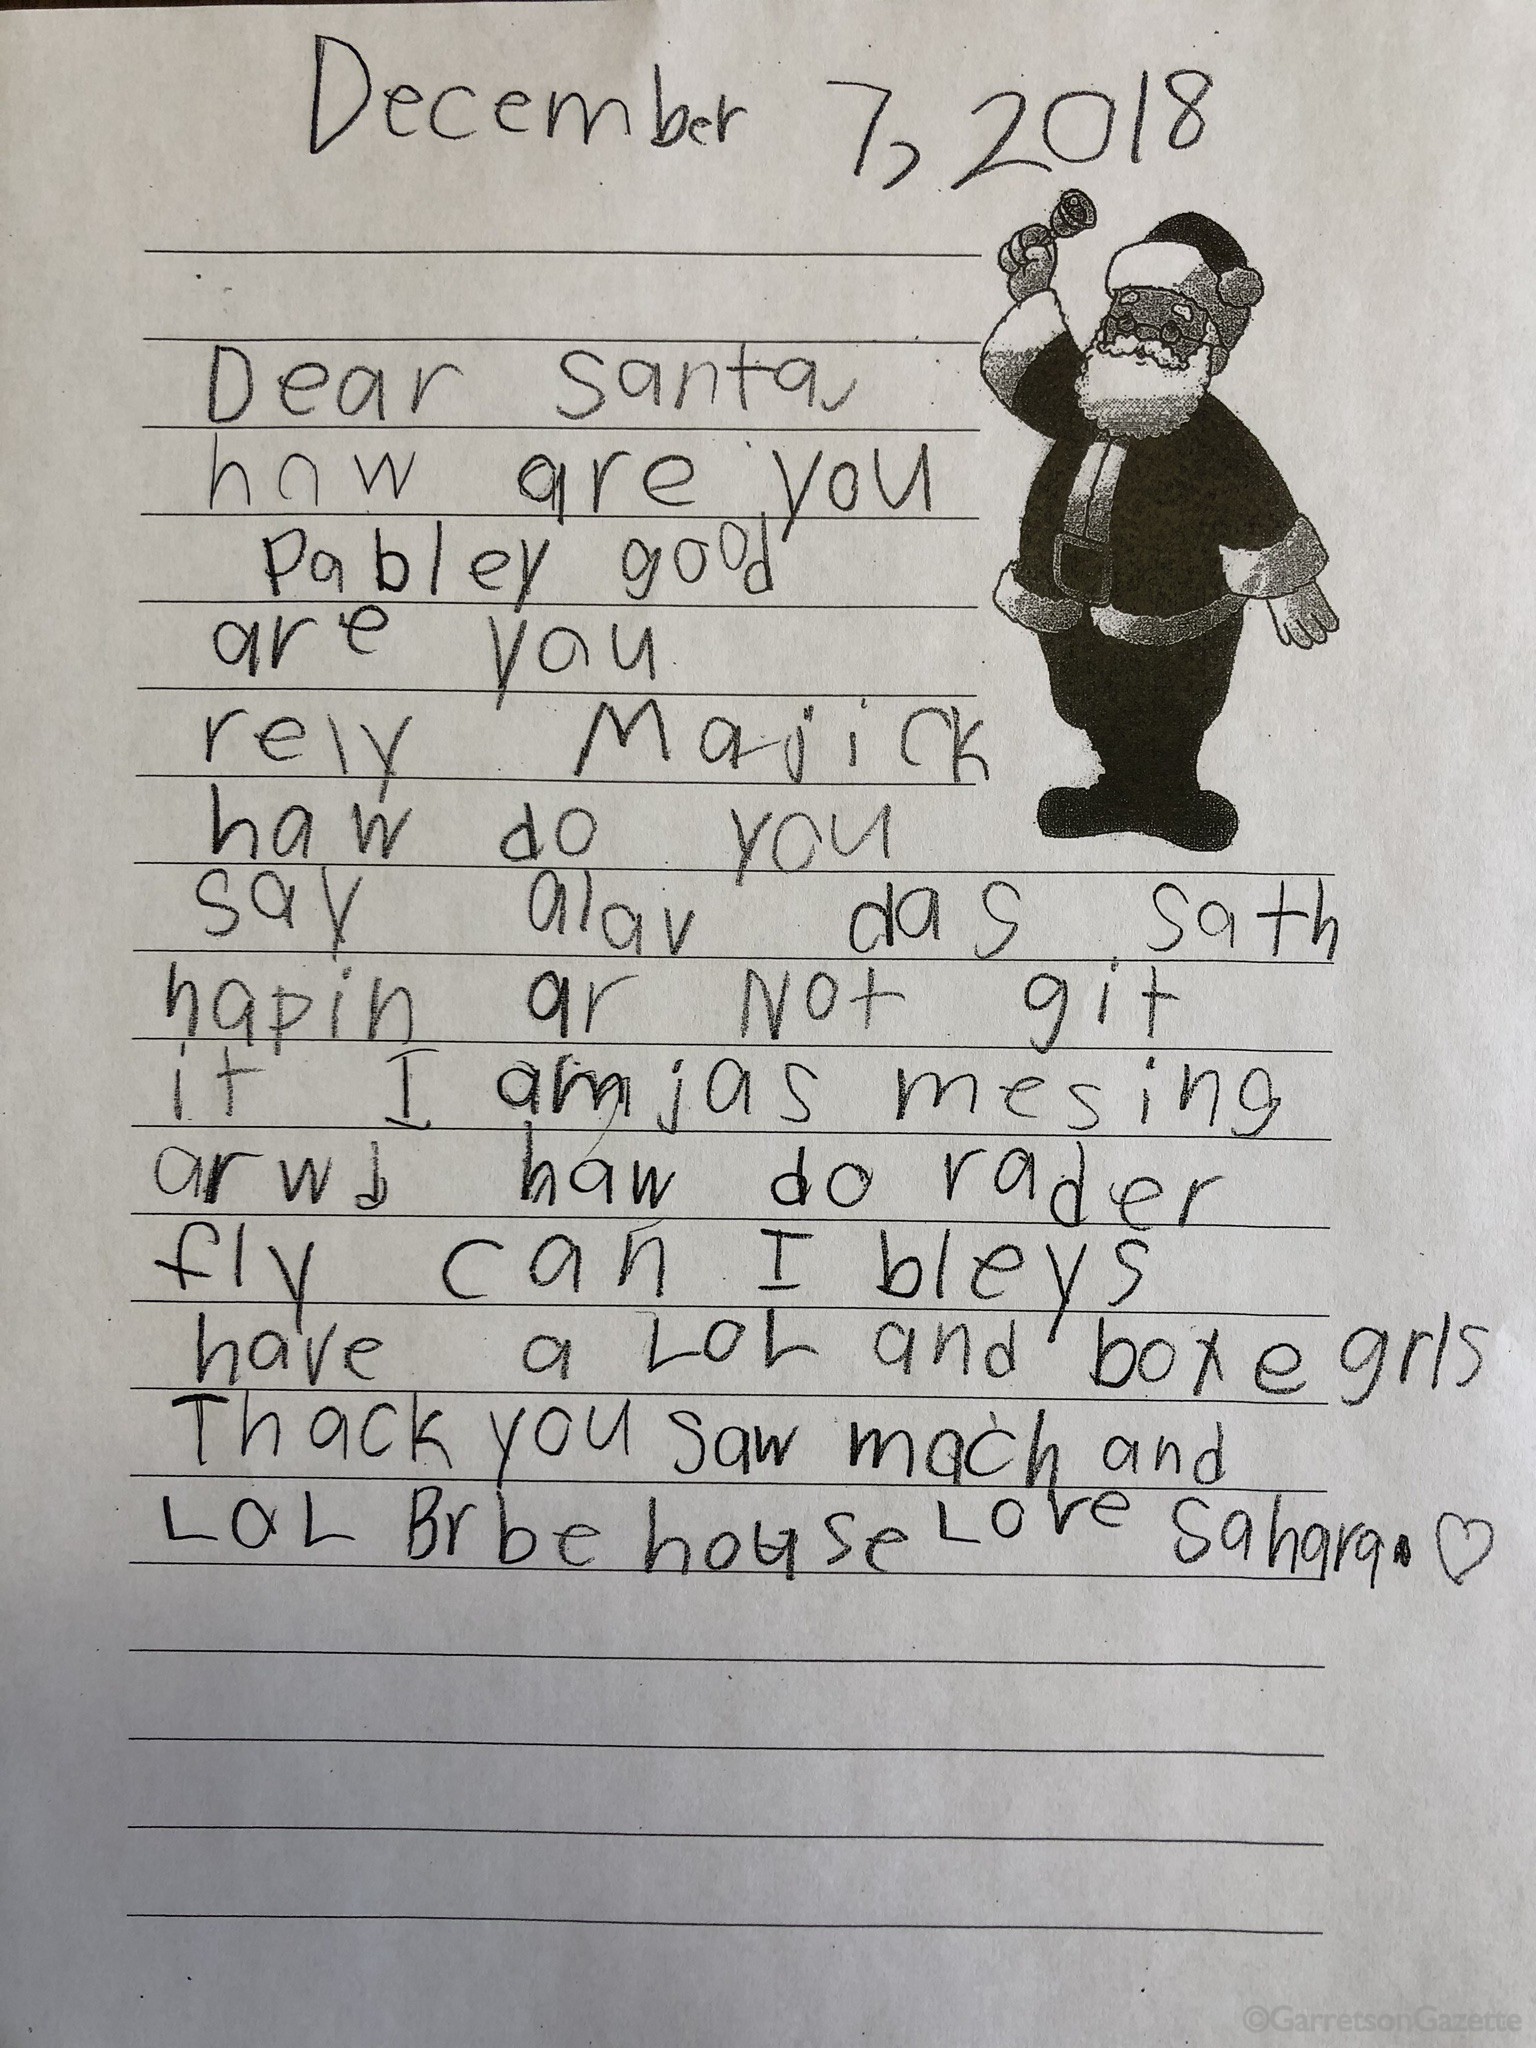 December 7, 2018
Dear Santa,
how are you
Pabley good
are you
rely Majick
haw do you
say alav das sath
hapin ar Not git
it I am jas mesing
arwd haw do rader
fly can I bleys
have a LOL and boxe grls
Thack you saw mach and
LOL Br be house Love Sahara. ♡
©GarretsonGazette